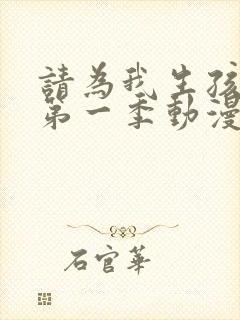 請為我生孩
第一季動漫
石官華